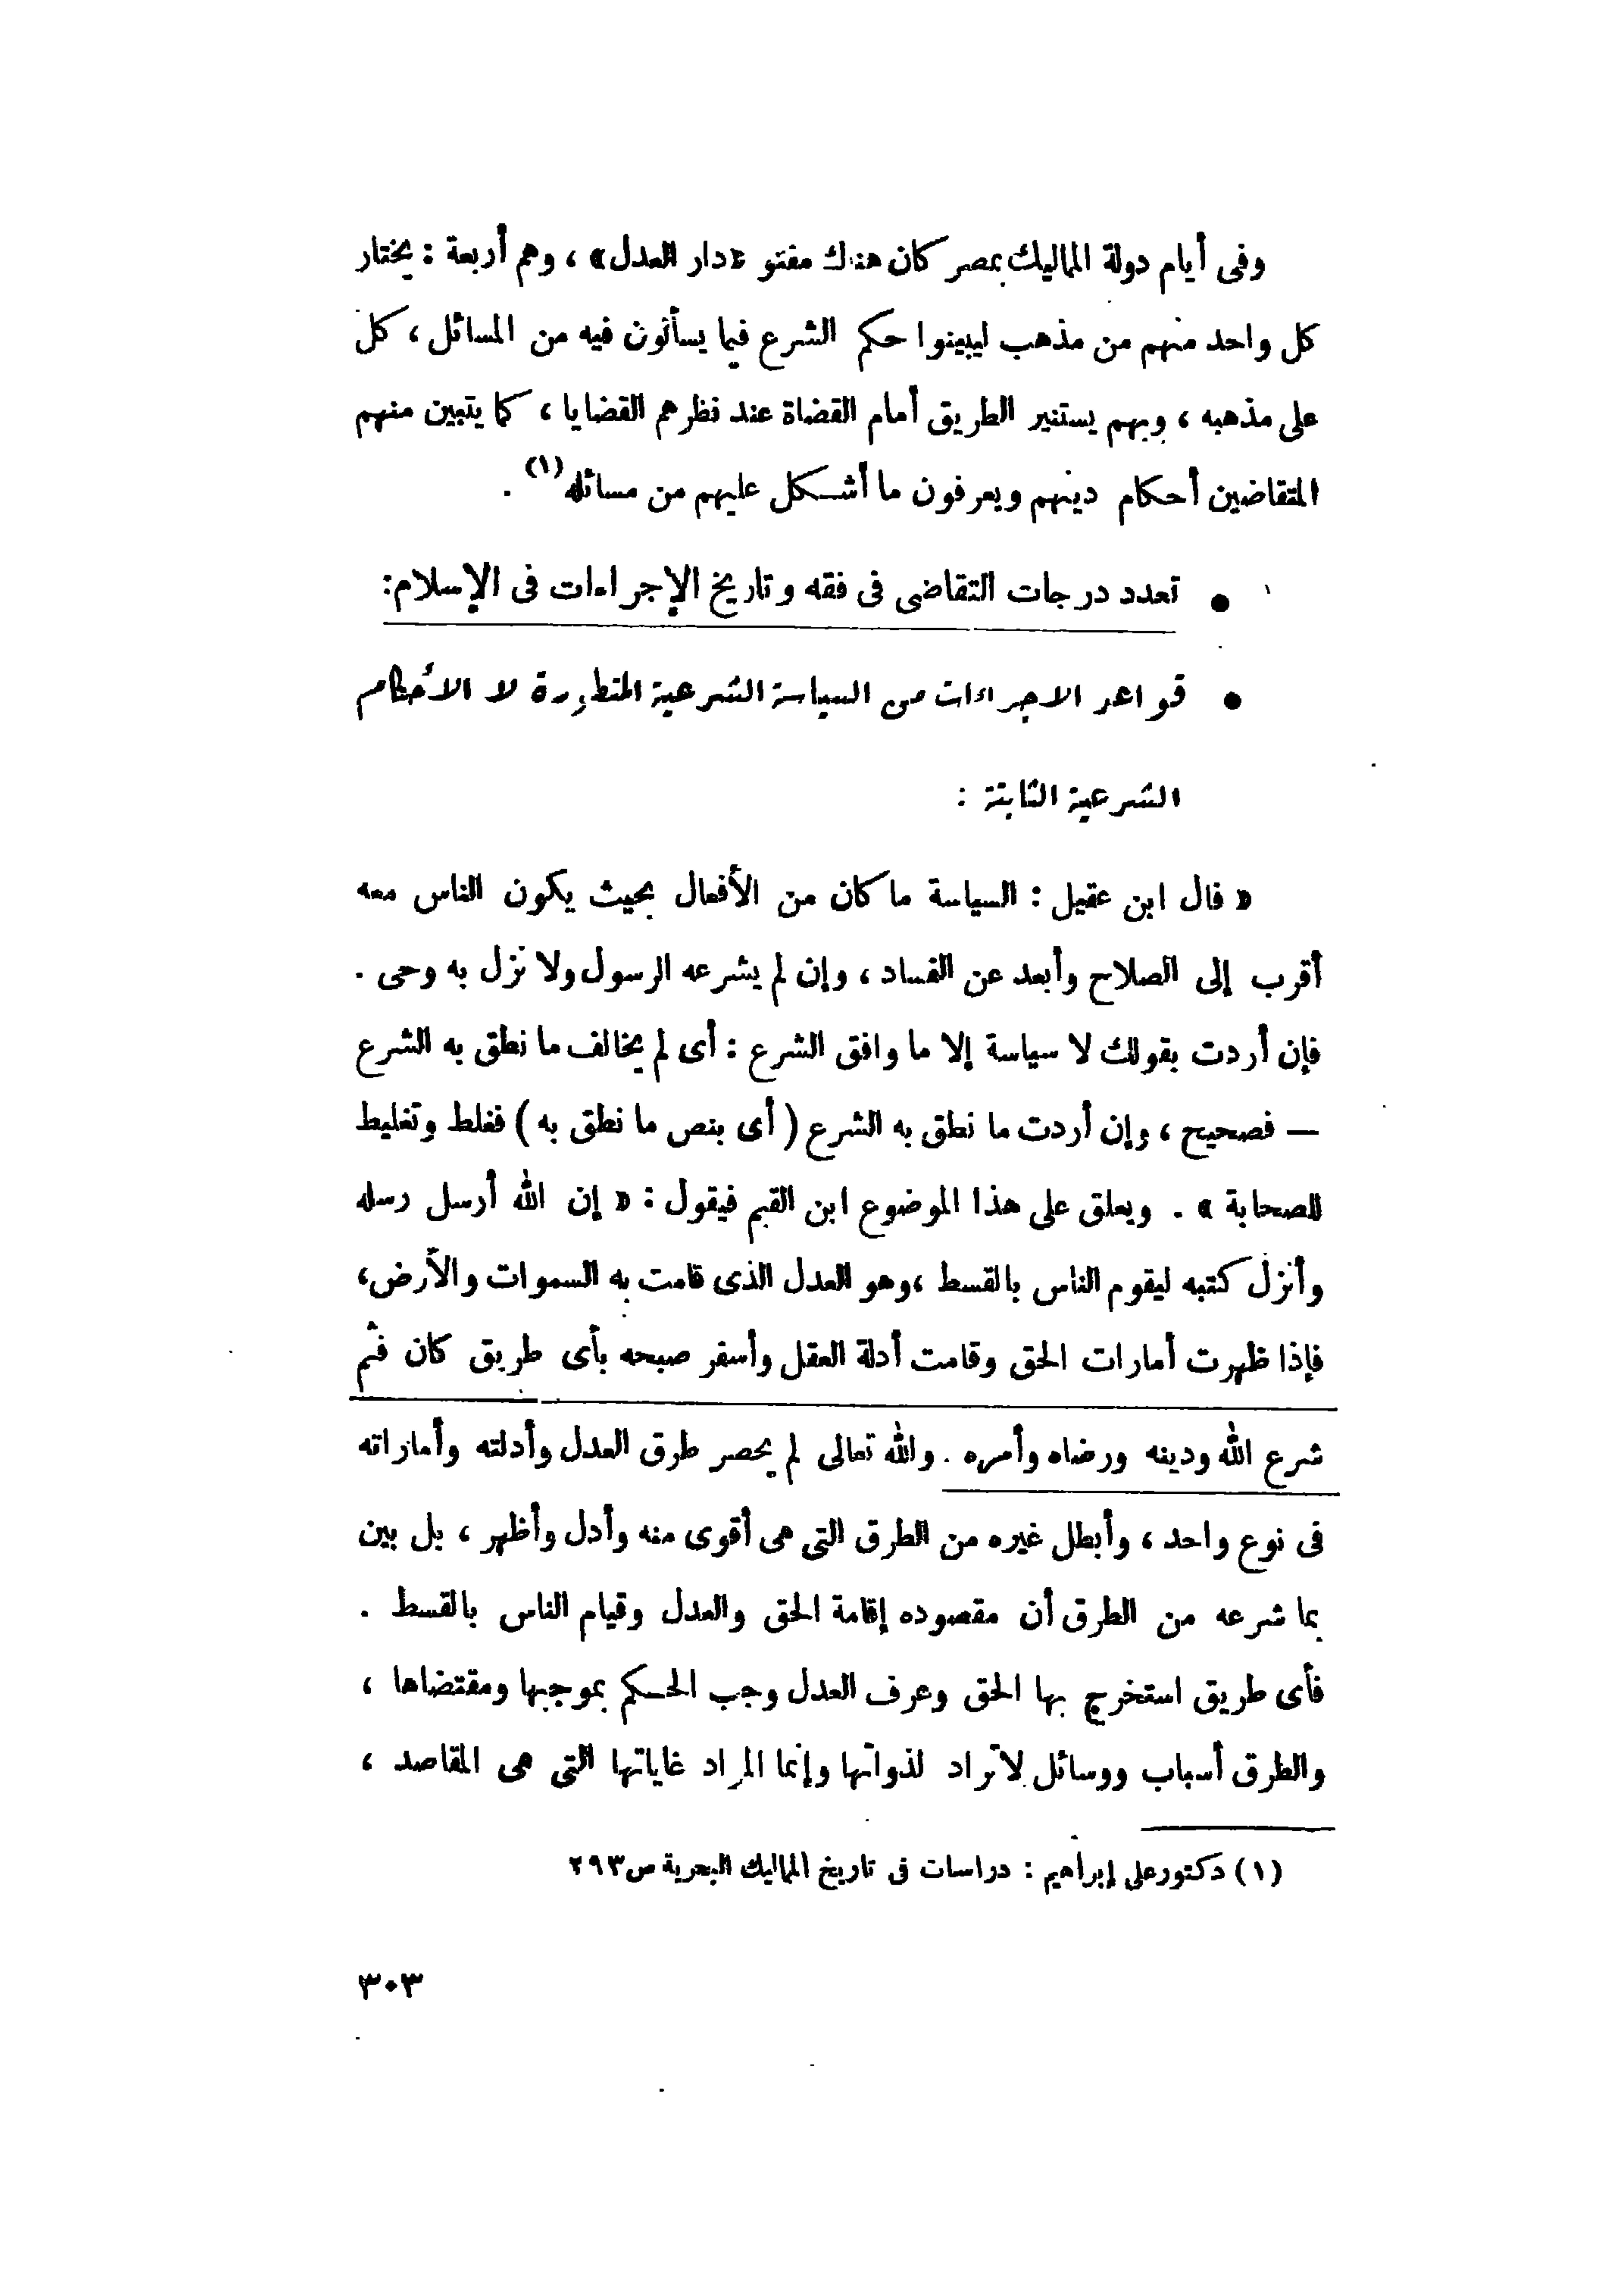 وفى أيام دولة المماليك بمصر كان هناك مفتو «دار العدل» ، وهم أربعة : يختار
كل واحد منهم من مذهب ليبينوا حكم الشرع فيما يسألون فيه من المسائل ، كل
على مذهبه ، وبهم يستنير الطريق أمام القضاة عند نظرهم القضايا ، كما يتبين منهم
المتقاضين أحكام دينهم ويعرفون ما أشكل عليهم من مسائله (١) .
• تعدد درجات التقاضى فى فقه وتاريخ الإجراءات فى الإسلام:
• قواعد الاجراءات من السياسة الشرعية المتطورة لا الأحكام
الشرعية الثابتة :
« قال ابن عقيل : السياسة ما كان من الأفعال بحيث يكون الناس معه
أقرب إلى الصلاح وأبعد عن الفساد ، وإن لم يشرعه الرسول ولا نزل به وحى .
فإن أردت بقولك لا سياسة إلا ما وافق الشرع : أى لم يخالف ما نطق به الشرع
— فصحيح ، وإن أردت ما نطق به الشرع ( أى بنص ما نطق به ) فغلط وتغليط
للصحابة » . ويعلق على هذا الموضوع ابن القيم فيقول : « إن الله أرسل رسله
وأنزل كتبه ليقوم الناس بالقسط ،وهو العدل الذى قامت به السموات والأرض،
فإذا ظهرت أمارات الحق وقامت أدلة العقل وأسفر صبحه بأى طريق كان فثم
شرع الله ودينه ورضاه وأمره . والله تعالى لم يحصر طرق العدل وأدلته وأماراته
فى نوع واحد ، وأبطل غيره من الطرق التى هى أقوى منه وأدل وأظهر ، بل بين
بما شرعه من الطرق أن مقصوده إقامة الحق والعدل وقيام الناس بالقسط .
فأى طريق استخرج بها الحق وعرف العدل وجب الحكم بموجبها ومقتضاها ،
والطرق أسباب ووسائل لا تراد لذواتها وإنما المراد غاياتها التى هى المقاصد ،
(١) دكتور على إبراهيم : دراسات فى تاريخ المماليك البحرية ص٢٩٣
٣٠٣